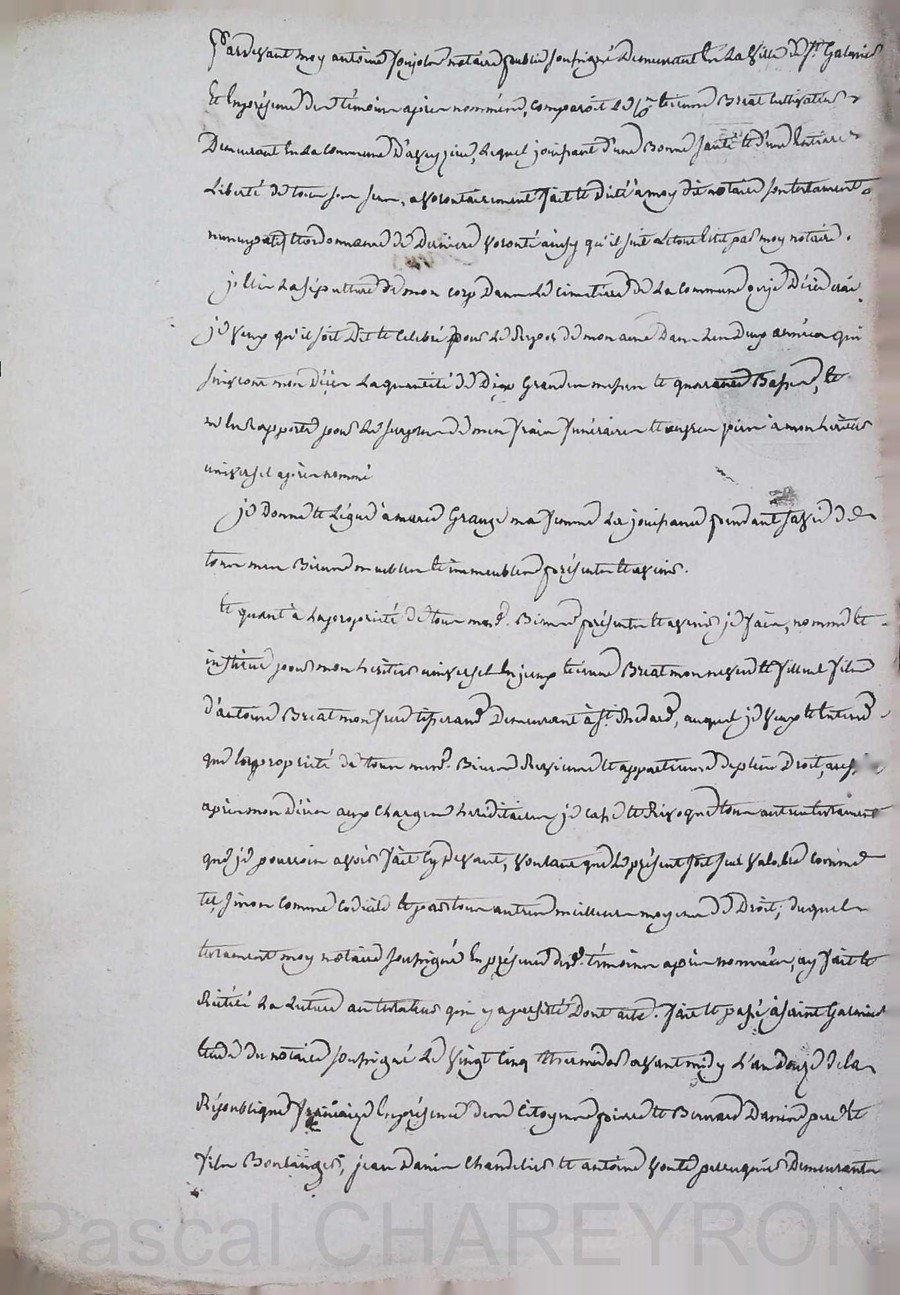 Pardevant moy antoine notaire public soussigné Demeurant En La Ville de St. Galmier
Et En présence des témoins apres nommés, comparoit Le Cen. Etienne Breat Cultivateur
Demeurant En La Commune D'aveyzieu, Lequel jouissant d'une Bonne santé et d'une Entiere
Liberté de tous ses sens, a volontairement fait et dicté a moy dit notaire son testament
nuncupatif et ordonnance de Derniere volonté ainsy qu'il suit Le tout Ecrit par moy notaire.
j'Elis La sépulture de mon corps Dans Le Cimetiere de La Commune ou je Décèderai.
je veux qu'il soit Dit et Celebré pour Le Repos de mon ame Dans Les Deux années qui
suivront mon Décès La quantité de Dix Grandes messes et quarante Basses, Et
m'En rapporte pour Le surplus de mes frais funéraires et œuvres pies à mon heritier
universel après nommé
je Donne et Légue à marie Grange ma femme La jouissance pendant sa vie de
tous mes Biens meubles et immeubles présents et avenir.
Et quant à La propriété de tous mesd. Biens présents et avenir je fais, nomme et
institue pour mon heritier universel En jceux Etienne Breat mon neveu et filleul fils
d'antoine Breat mon frere tisserand Demeurant à St. Medard, auquel je veux et Entend
que La propriété de tous mesd. Biens Revienne et appartienne de plein Droit,
après mon Décès aux Charges héréditaires je Casse et Revoque tous autres testaments
que je pourrois avoir fait Cy Devant, voulant que Le présent soit seul valable comme
tel, sinon Comme Codicile et par tous autres meilleurs moyens de Droit; Duquel
testament moy notaire soussigné En présence desd. témoins après nommés, ay fait et
Réitéré La Lecture au testateur qui y a persisté Dont acte. fait et passé à saint Galmier
Etude du notaire soussigné Le vingt Cinq thermidor avant midy L'an Douze de la
République française En présence des Citoyens pierre et Bernard Danier pere et
fils Boulangers, jean Danier Chandelier et antoine perruquier Demeurants
Pascal CHAREYRON